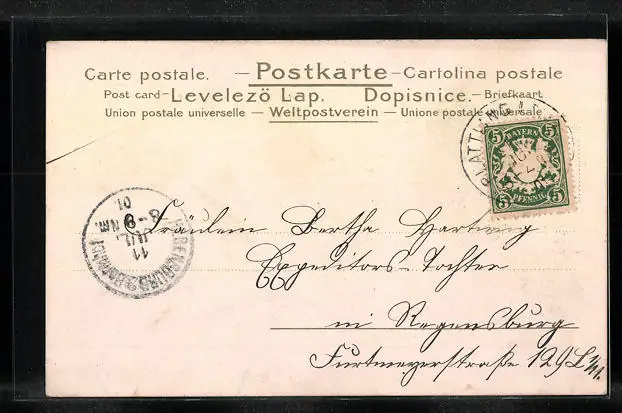 Carte postale. — Postkarte — Cartolina postale
Post card — Levelezö Lap. Dopisnice. — Briefkaart
Union postale universelle — Weltpostverein — Unione postale universale
PLATTLING
5 BAYERN 5
5 PFENNIG 5
REGENSBURG 2
11 JUL.
8-9 Nm.
01.
Fräulein Bertha Hartwig
Expeditors-Tochter
in Regensburg
Furtmeyerstraße 129